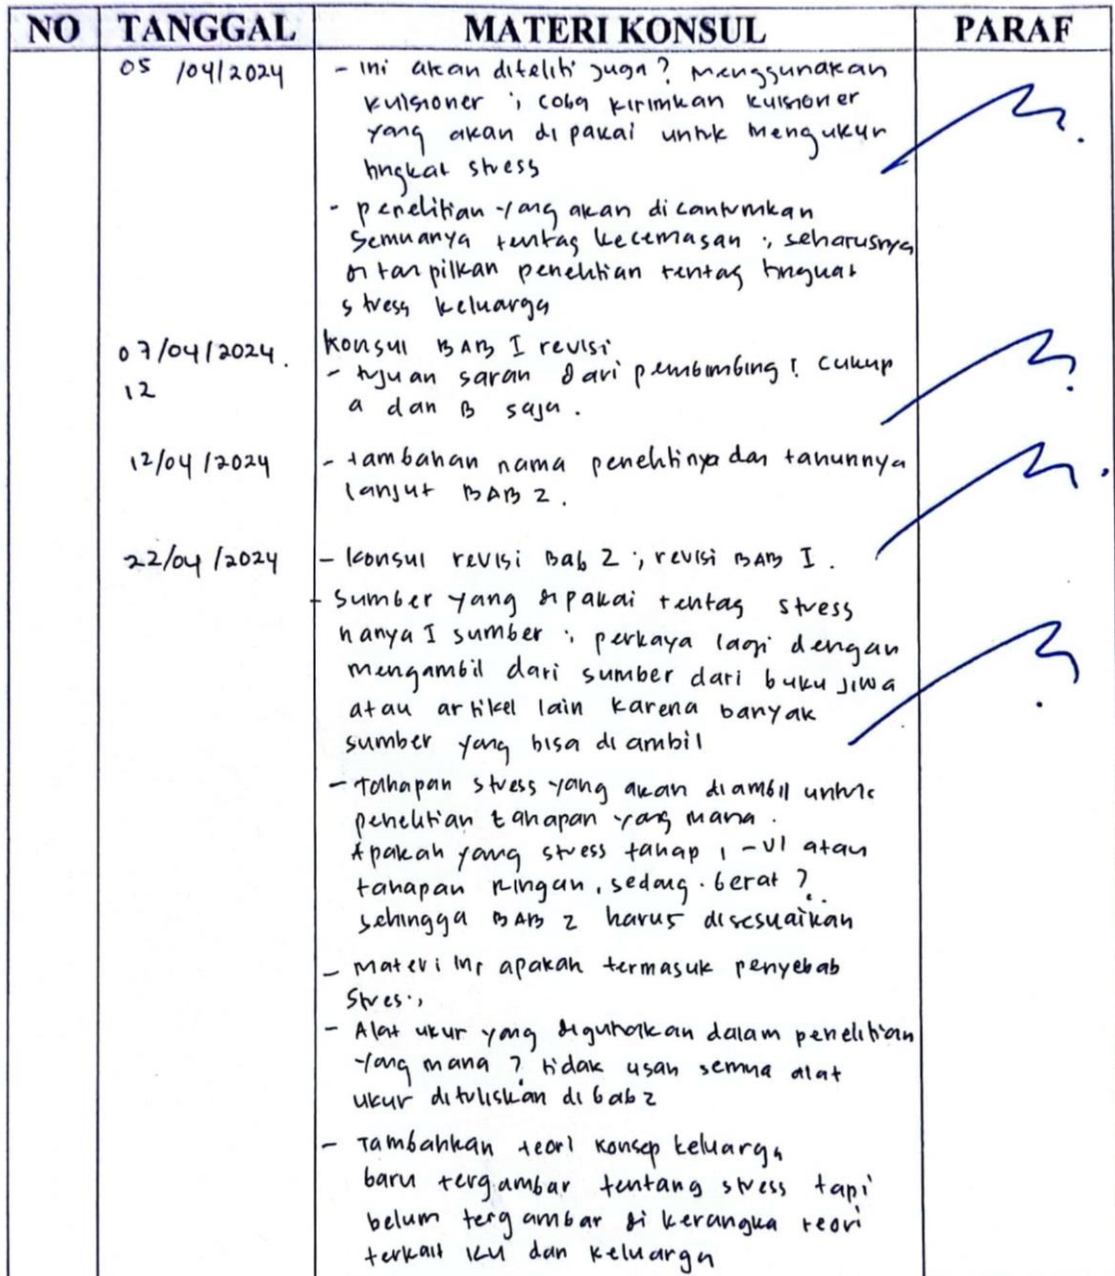 NO TANGGAL MATERI KONSUL PARAF
05 /04/2024 - Ini akan diteliti juga? Menggunakan
kuisioner ; coba kirimkan kuisioner
yang akan di pakai untuk mengukur
tingkat stress
- penelitian yang akan dicantumkan
semuanya tentag kecemasan ; seharusnya
ditampilkan penelitian tentag tingkat
stress keluarga
07/04/2024. Konsul BAB I revisi
- tujuan saran dari pembimbing : cukup
12 a dan B saja.
12/04/2024 - tambahan nama penelitinya dan tahunnya
lanjut BAB 2.
22/04/2024 - Konsul revisi Bab 2 ; revisi BAB I.
- Sumber yang dipakai tentag stress
hanya I sumber ; perkaya lagi dengan
mengambil dari sumber dari buku jiwa
atau artikel lain karena banyak
sumber yang bisa diambil
- Tahapan stress yang akan diambil untuk
penelitian tahapan yang mana.
Apakah yang stress tahap I - VI atau
tahapan Ringan, sedang. berat ?
sehingga BAB 2 harus disesuaikan
- Materi ini apakah termasuk penyebab
stres ;
- Alat ukur yang digunakan dalam penelitian
yang mana ? tidak usah semua alat
ukur dituliskan di bab 2
- Tambahkan teori konsep keluarga
baru tergambar tentang stress tapi
belum tergambar di kerangka teori
terkait ICU dan keluarga